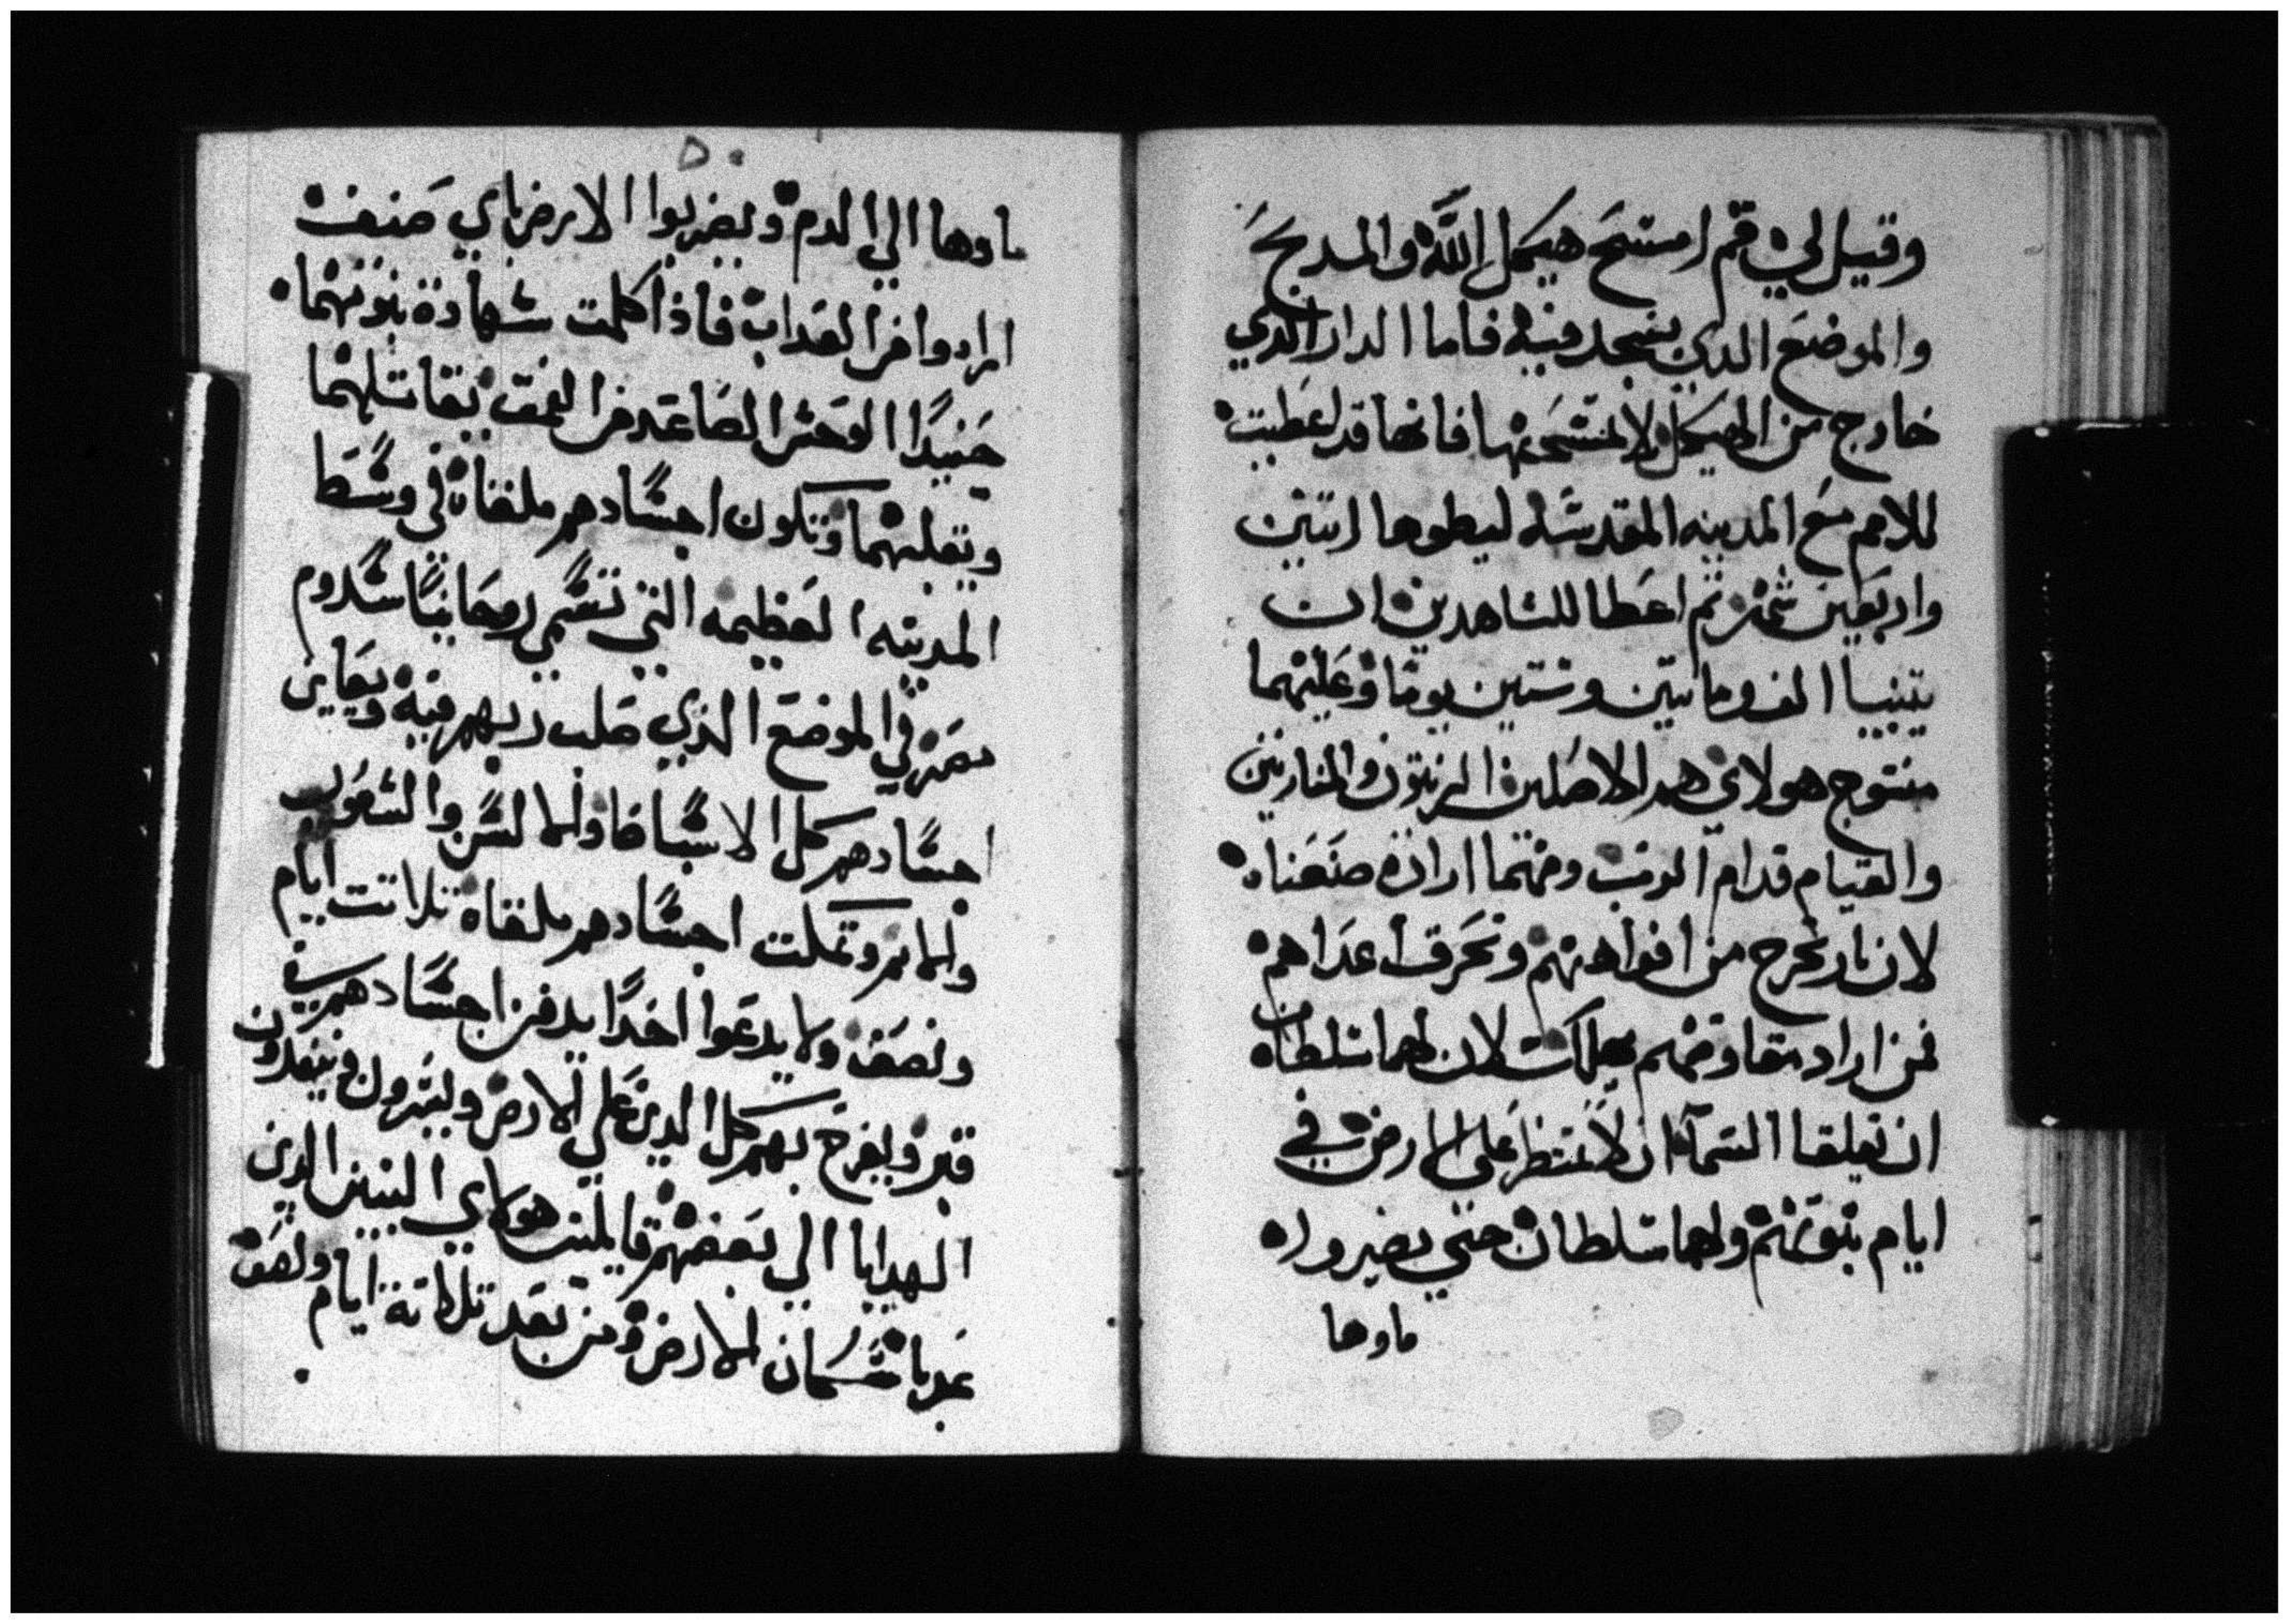 وقيل لي قم امسح هيكل الله والمدبح
والموضع الدي يسجد فيه فاما الدار الدي
خارج من الهيكل لا تمسحها فانها قد اعطيت
للامم مع المدينه المقدسه ليطوها اتنين
واربعين شهر تم اعطا للشاهدين ان
يتنبيا الف وماتين وستين يوما وعليهما
منتوج هولاي هدا الاصلين الزيتون والمنارتين
والقيام قدام الرب ومتما اراده
لان نار تخرج من افواههم وتحرق اعداهم
فمن اراد مقاومتهم يهلك لان لهما سلطان
ان يغلقا السما ان لا تمطر على الارض في
ايام نبوتهم ولهما سلطان حتي يصيروا
ماوها
٥٠
ماوها الي الدم ويضربوا الارض باي صنف
ارادوا من العداب فاذا كملت شهادة نبوتهما
حنيدا الوحش الصاعد من العمق يقاتلهما
ويغلبهما وتكون اجسادهم ملقاه في وسط
المدينه العظيمه التي تسمي روحانيا سدوم
مصر في الموضع الذي صلب ربهم فيه ويعاين
اجسادهم كل الاسباط والالسن والشعوب
والامم وتمكت اجسادهم ملقاه تلاتت ايام
ونصف ولا يدعوا احدا يدفن اجسادهم في
قبر ويفرح بهم كل الدين على الارض ويسرون وينفدون
الهدايا الي بعضهم هولاي النبيين الدين
عدبا سكان الارض ومن بعد تلاتة ايام ونصف